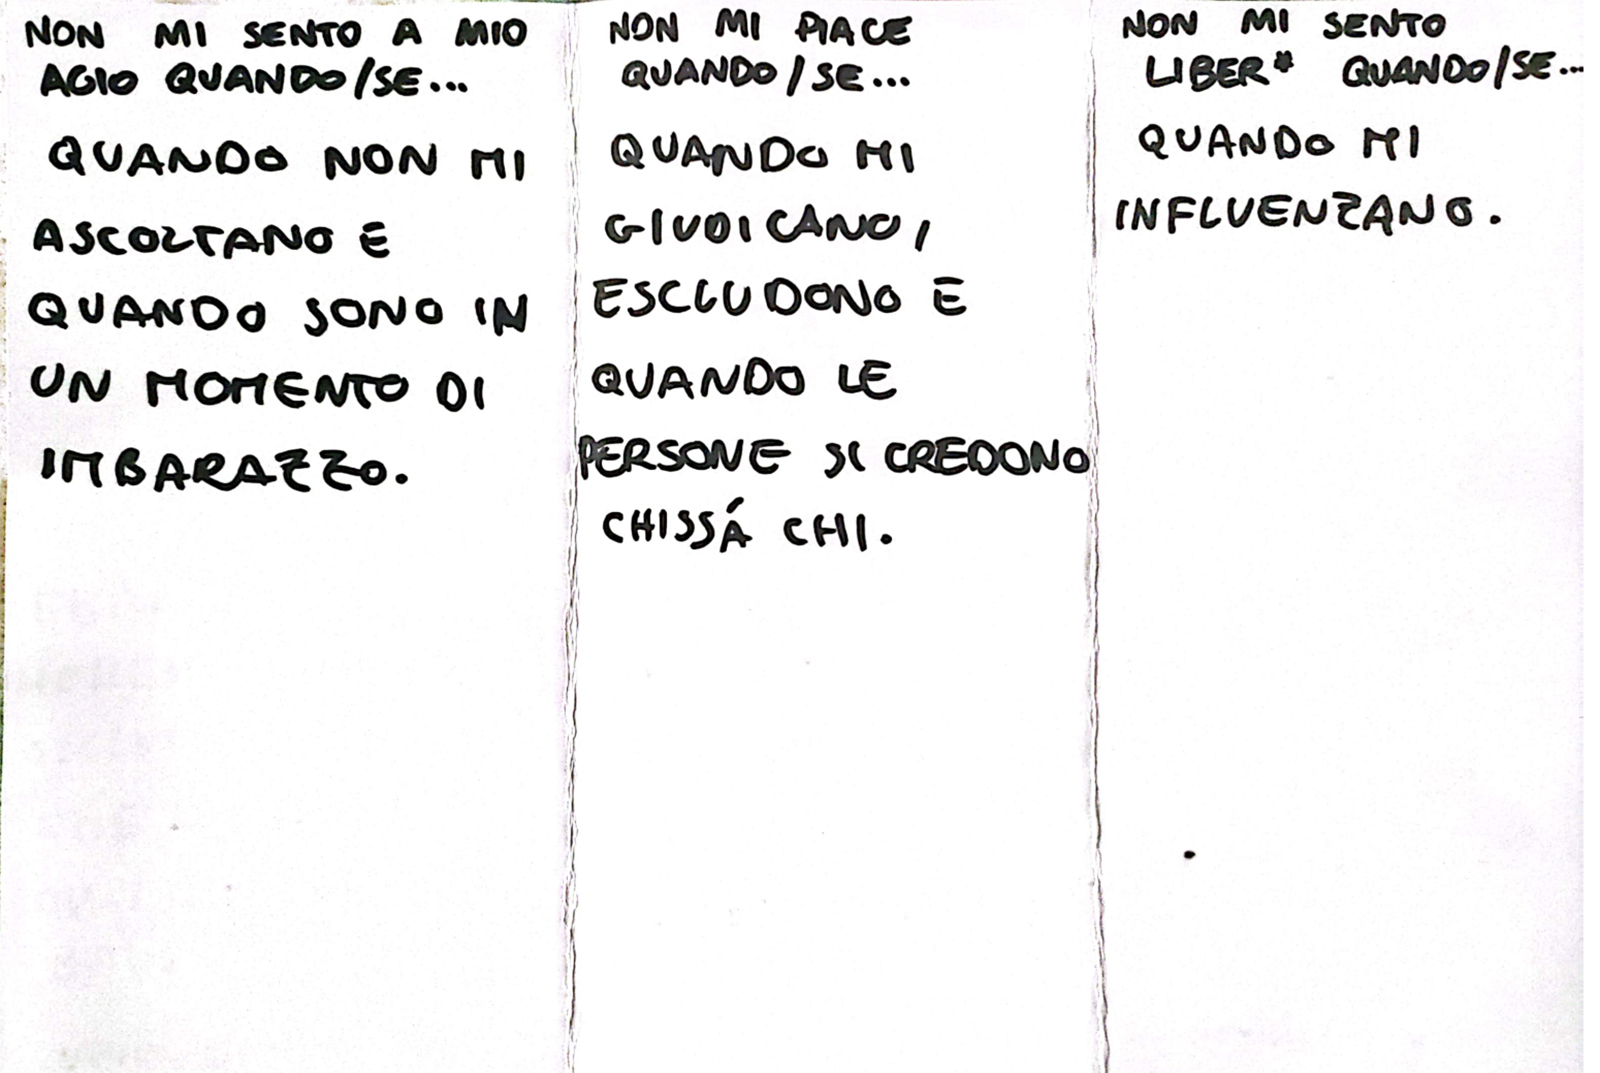 NON MI SENTO A MIO
AGIO QUANDO/SE...
QUANDO NON MI
ASCOLTANO E
QUANDO SONO IN
UN MOMENTO DI
IMBARAZZO.
NON MI PIACE
QUANDO/SE...
QUANDO MI
GIUDICANO,
ESCLUDONO E
QUANDO LE
PERSONE SI CREDONO
CHISSÁ CHI.
NON MI SENTO
LIBER* QUANDO/SE...
QUANDO MI
INFLUENZANO.